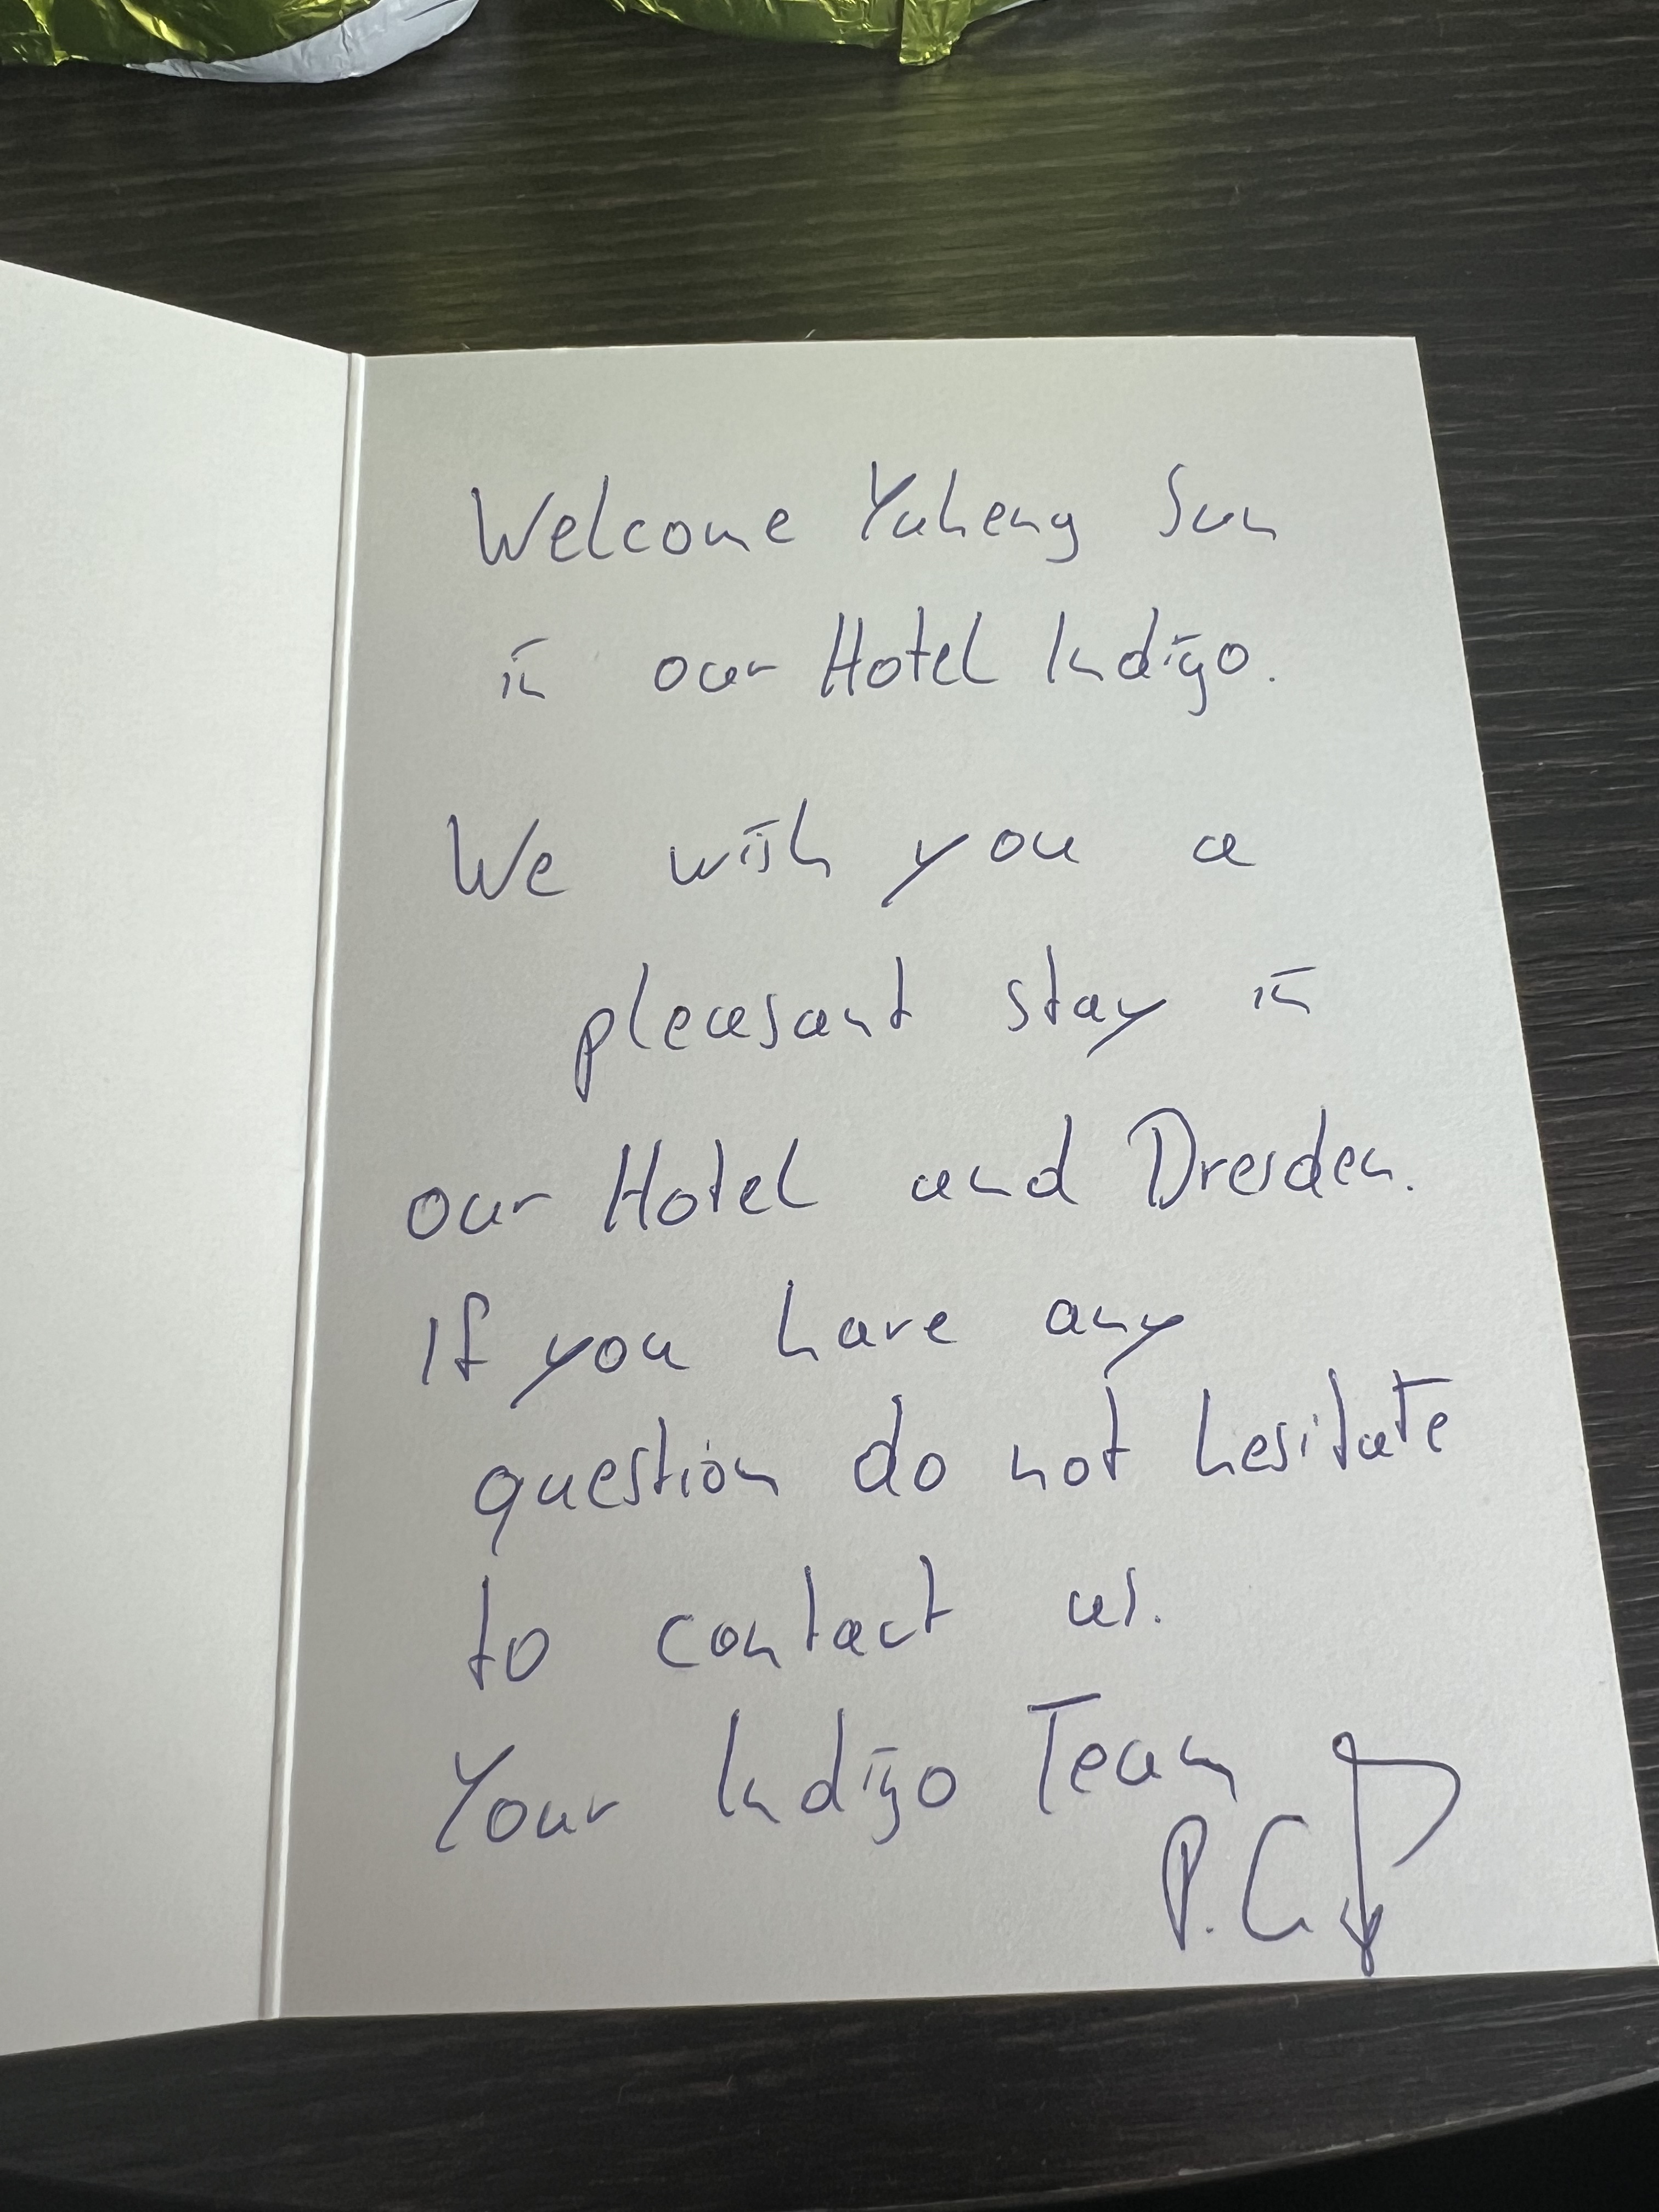 Welcome Yuheng Sun
in our Hotel Indigo.
We wish you a
pleasant stay in
our Hotel and Dresden.
If you have any
question do not hesitate
to contact us.
Your Indigo Team